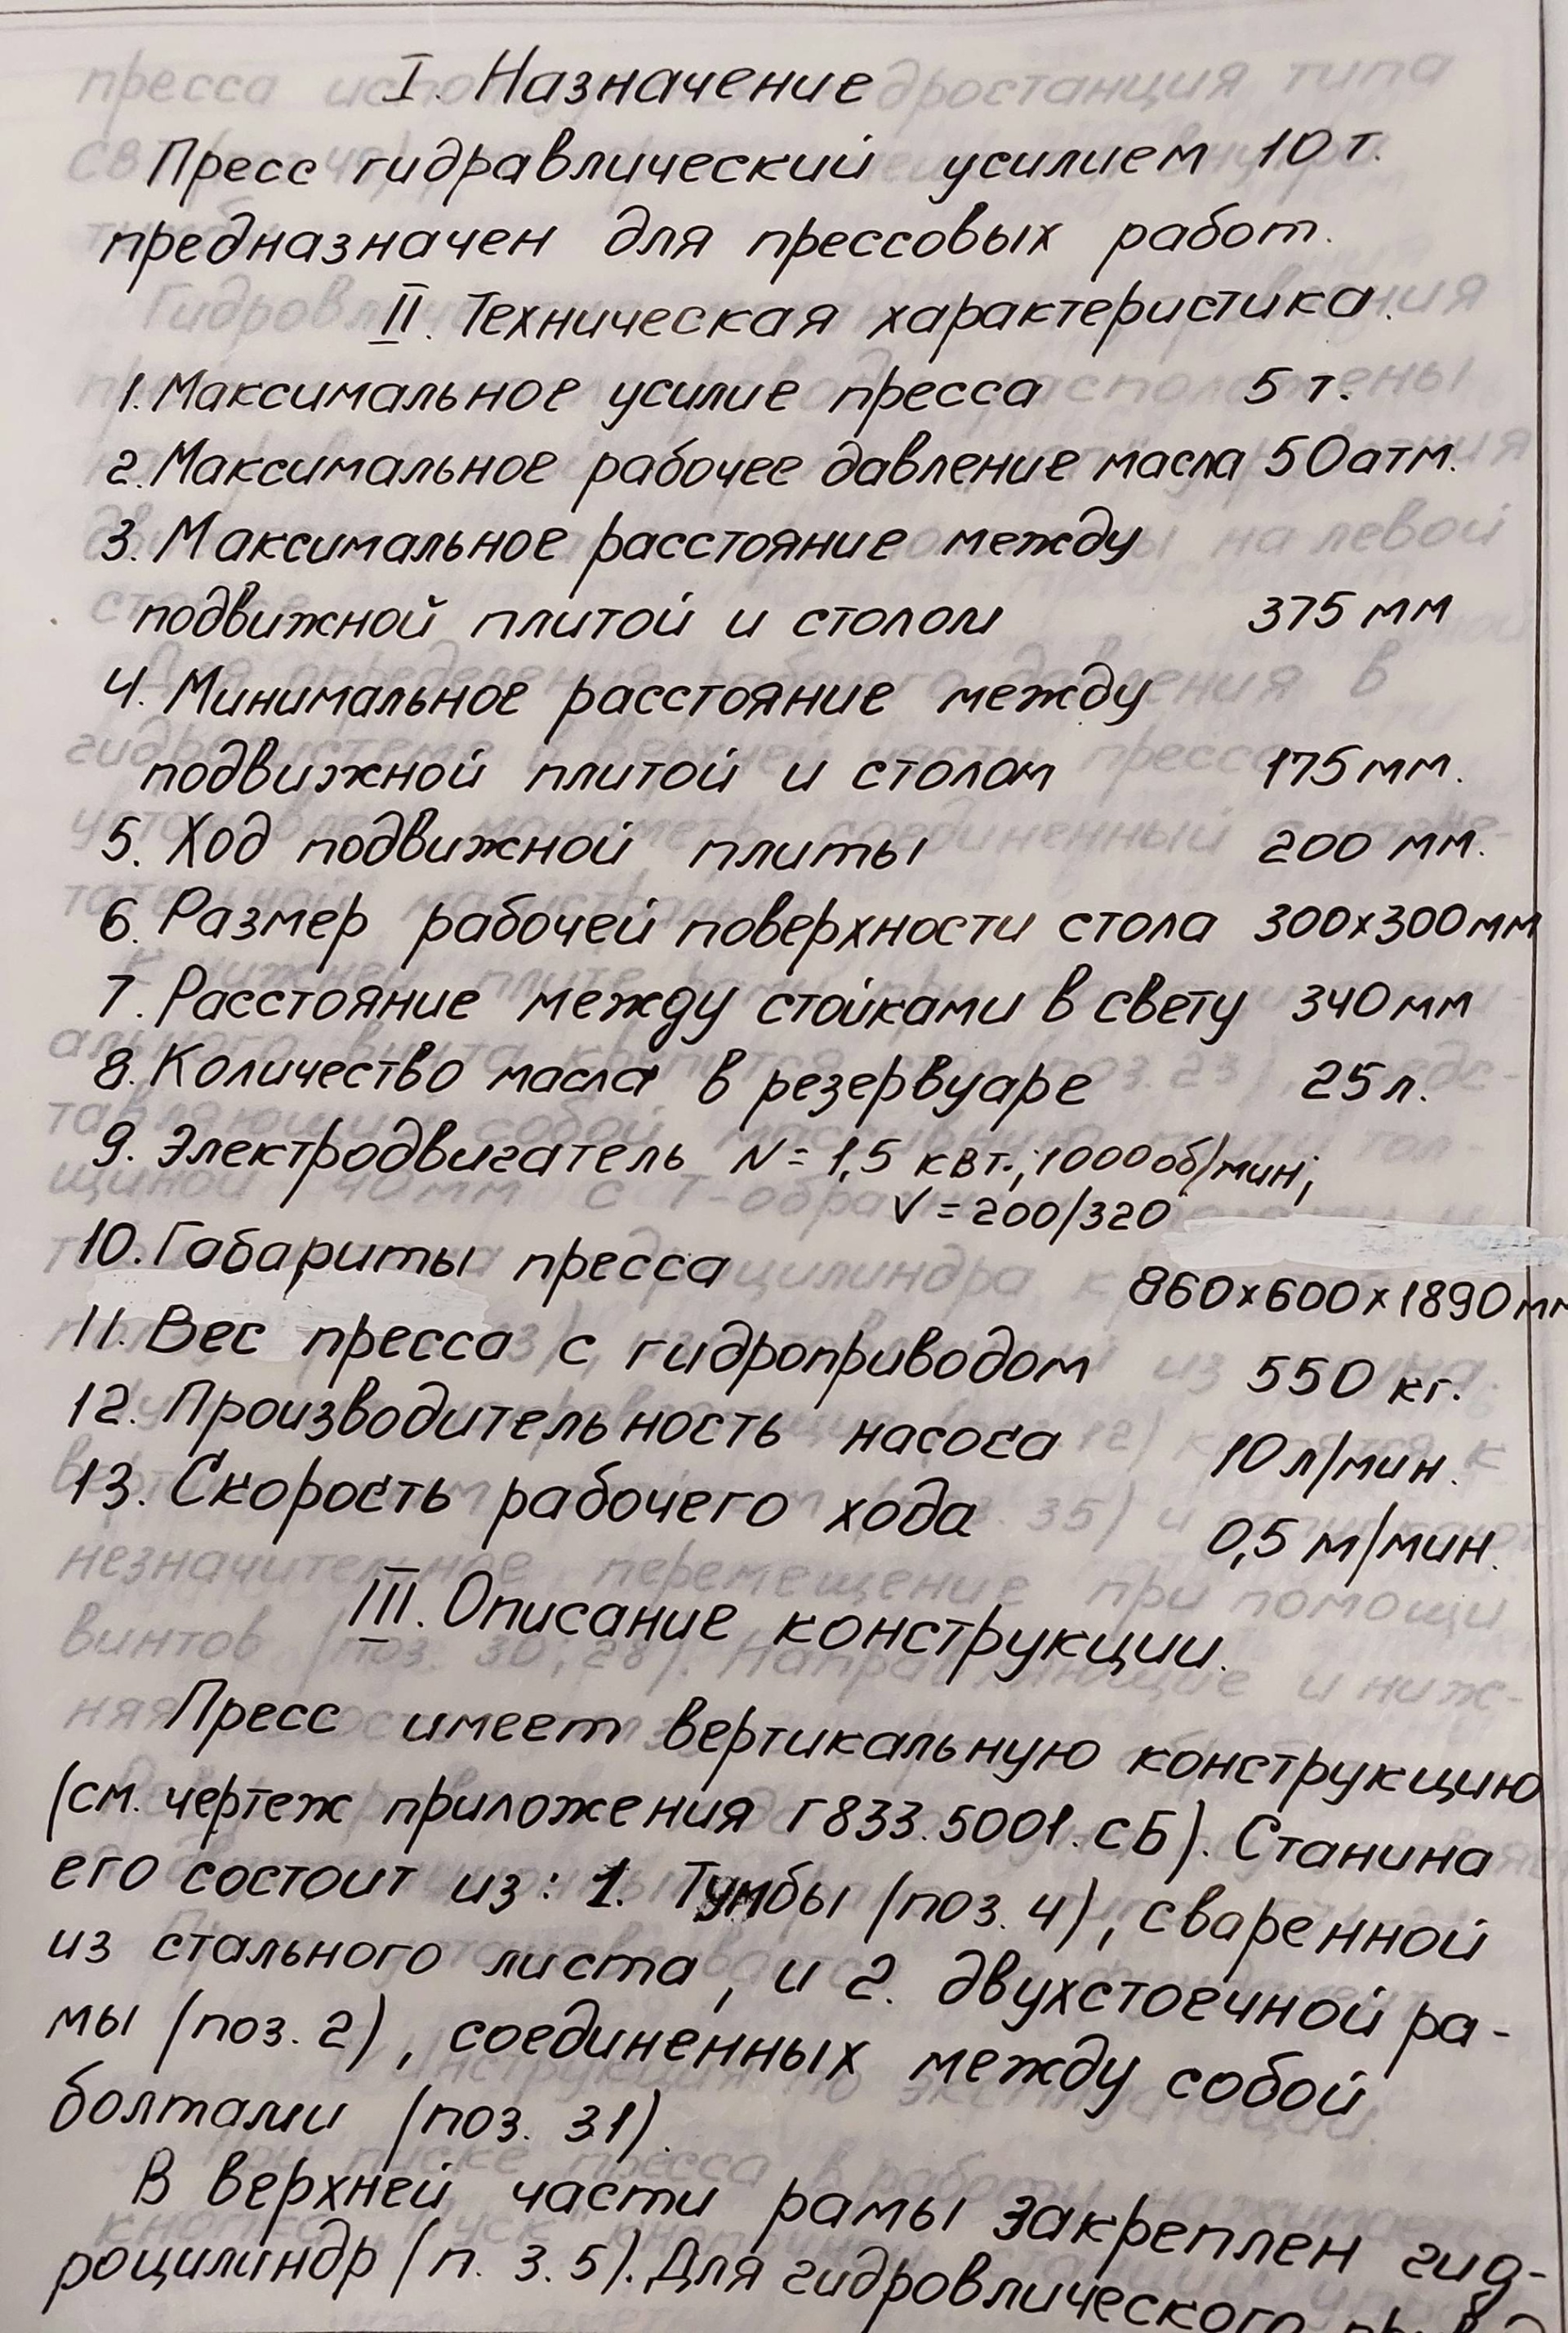 I. Назначение
Пресс гидравлический усилием 10 т.
предназначен для прессовых работ.
II. Техническая характеристика.
1. Максимальное усилие пресса 5 т.
2. Максимальное рабочее давление масла 50 атм.
3. Максимальное расстояние между
подвижной плитой и столом 375 мм
4. Минимальное расстояние между
подвижной плитой и столом 175 мм.
5. Ход подвижной плиты 200 мм.
6. Размер рабочей поверхности стола 300х300 мм
7. Расстояние между стойками в свету 340 мм
8. Количество масла в резервуаре 25 л.
9. Электродвигатель N = 1,5 квт.; 1000 об/мин;
V = 200/320
10. Габариты пресса 860х600х1890 мм
11. Вес пресса с гидроприводом 550 кг.
12. Производительность насоса 10 л/мин.
13. Скорость рабочего хода 0,5 м/мин.
III. Описание конструкции.
Пресс имеет вертикальную конструкцию
(см. чертеж приложения Г833.5001.СБ). Станина
его состоит из: 1. Тумбы (поз. 4), сваренной
из стального листа, и 2. двухстоечной ра-
мы (поз. 2), соединенных между собой
болтами (поз. 31).
В верхней части рамы закреплен гид-
роцилиндр (п. 3.5). Для гидровлического